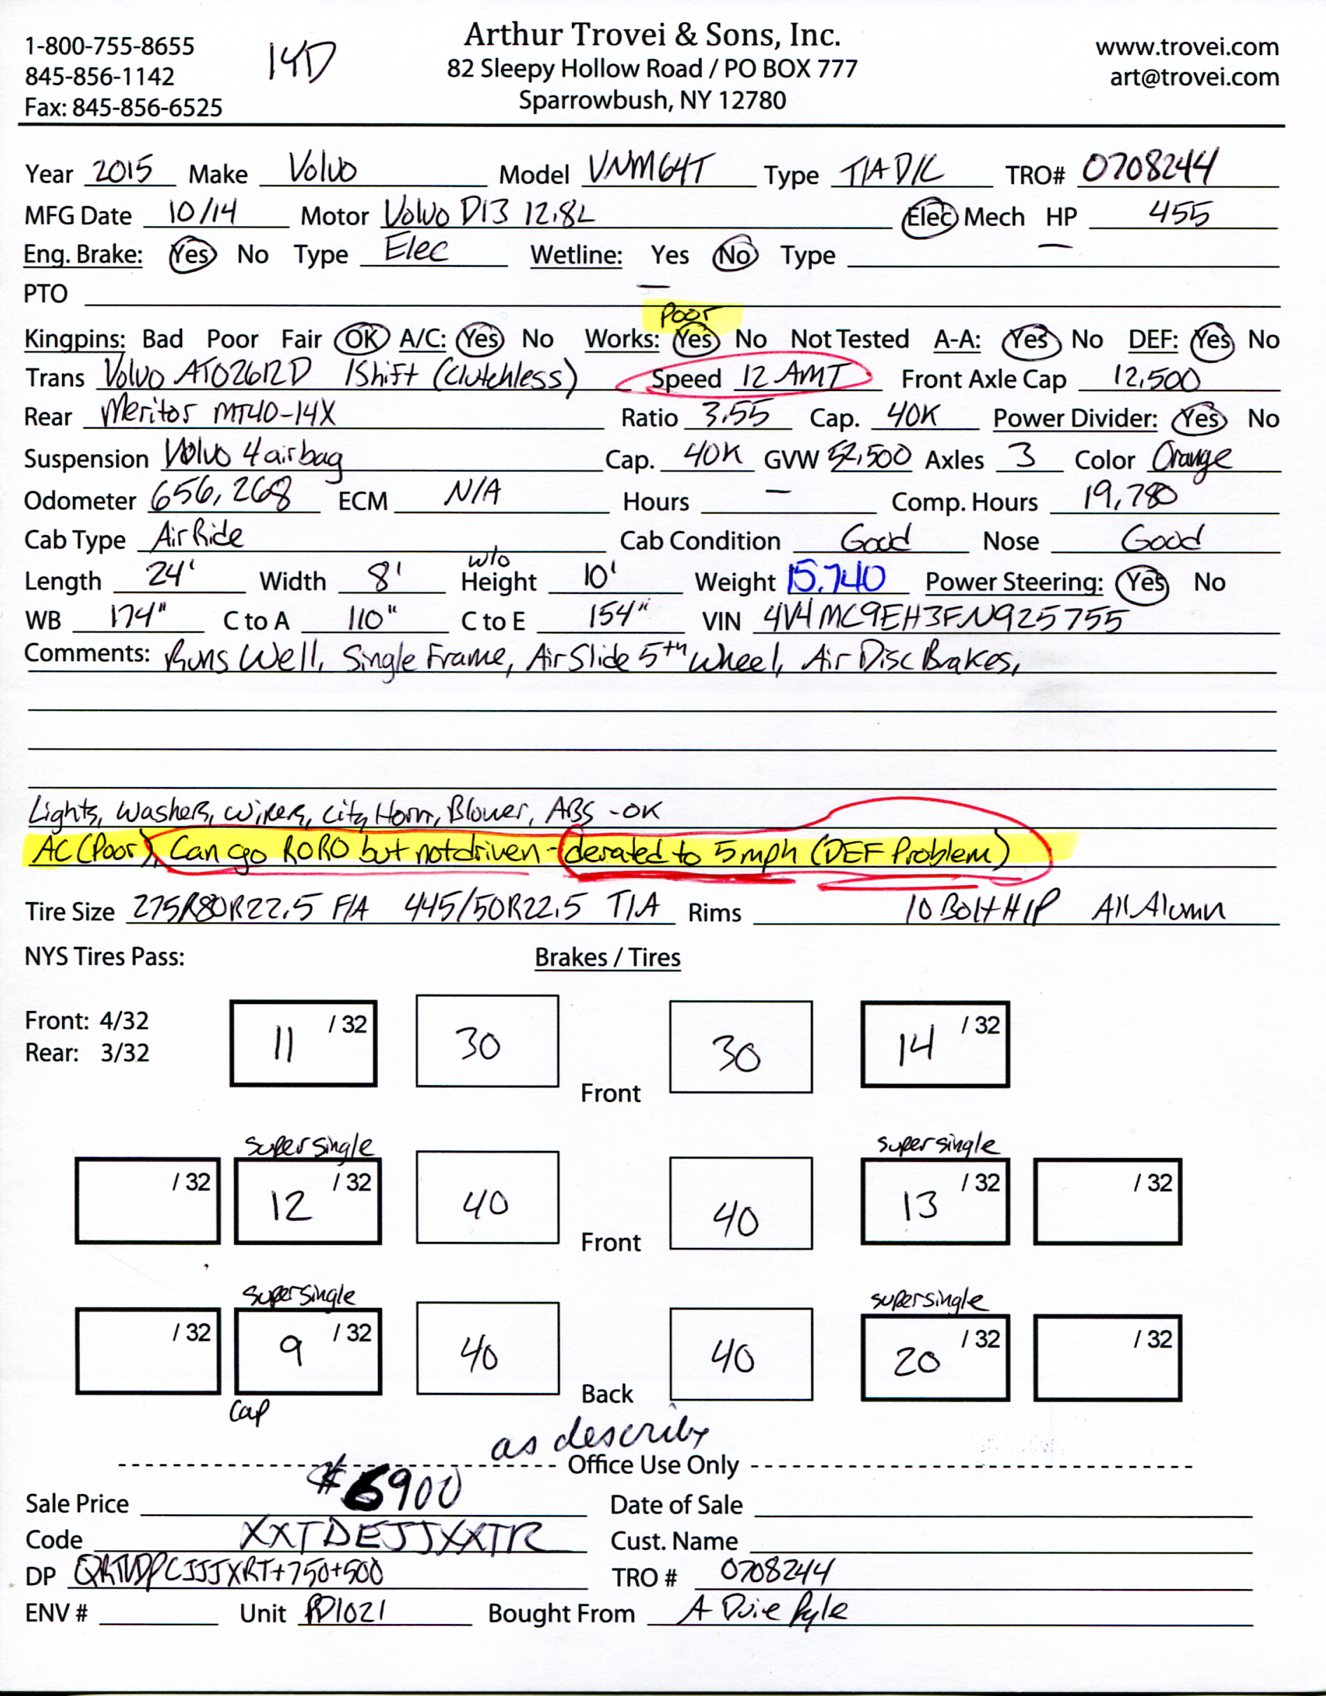 1-800-755-8655
845-856-1142
Fax: 845-856-6525
14D
Arthur Trovei & Sons, Inc.
82 Sleepy Hollow Road / PO BOX 777
Sparrowbush, NY 12780
www.trovei.com
art@trovei.com
Year 2015 Make Volvo Model VNM64T Type T/A D/C TRO# 0708244
MFG Date 10/14 Motor Volvo D13 12.8L Elec Mech HP 455
Eng. Brake: Yes No Type Elec Wetline: Yes No Type
PTO —
Poor
Kingpins: Bad Poor Fair OK A/C: Yes No Works: Yes No Not Tested A-A: Yes No DEF: Yes No
Trans Volvo ATO2612D IShift (Clutchless) Speed 12 AMT Front Axle Cap 12,500
Rear Meritor MT40-14X Ratio 3.55 Cap. 40K Power Divider: Yes No
Suspension Volvo 4 airbag Cap. 40K GVW 52,500 Axles 3 Color Orange
Odometer 656,268 ECM N/A Hours — Comp. Hours 19,780
Cab Type Air Ride Cab Condition Good Nose Good
Length 24' Width 8' w/o Height 10' Weight 15,740 Power Steering: Yes No
WB 174" C to A 110" C to E 154" VIN 4V4MC9EH3FN925755
Comments: Runs Well, Single Frame, Air Slide 5th Wheel, Air Disc Brakes,
Lights, Washers, Wipers, City Horn, Blower, ABS - OK
AC (Poor) Can go RORO but not driven - derated to 5 mph (DEF Problem)
Tire Size 275R80R22.5 F/A 445/50R22.5 T/A Rims 10 Bolt H/P All Alumn
NYS Tires Pass: Brakes / Tires
Front: 4/32
Rear: 3/32
11 /32 30 Front 30 14 /32
super single super single
/32 12 /32 40 Front 40 13 /32 /32
super single super single
/32 9 /32 40 Back 40 20 /32 /32
Cap
as describ
Office Use Only
Sale Price $6900 Date of Sale
Code XXTDEJJXXTR Cust. Name
DP TRO # 0708244
ENV # Unit PD1021 Bought From A Duie Pyle